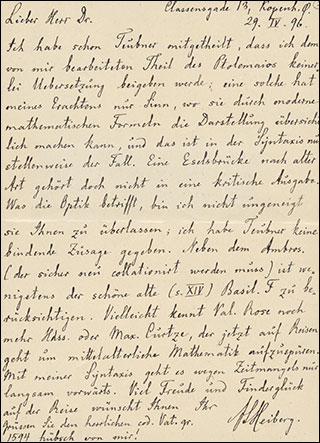 Classensgade 13, Kopenh. Ø.
Lieber Herr Dr. 29. IV. 96.
Ich habe schon Teubner mitgetheilt, dass ich dem
von mir bearbeiteten Theil des Ptolemaios keiner
lei Uebersetzung beigeben werde; eine solche hat
meines Erachtens nur Sinn, wo sie durch moderne
mathematischen Formeln die Darstellung übersicht
lich machen kann, und das ist in der Syntaxis nur
stellenweise der Fall. Eine Eselsbrücke nach alter
Art gehört doch nicht in eine kritische Ausgabe.
Was die Optik betrifft, bin ich nicht ungeneigt
sie Ihnen zu überlassen; ich habe Teubner keine
bindende Zusage gegeben. Neben dem Ambros.
(der sicher neu collationirt werden muss) ist we-
nigstens der schöne alte (s. XIV) Basil. F zu be-
rücksichtigen. Vielleicht kennt Val. Rose noch
mehr Hdss. oder Max. Curtze, der jetzt auf Reisen
geht um mittelalterliche Mathematik aufzuspüren.
Mit meiner Syntaxis geht es wegen Zeitmangels nur
langsam vorwärts. Viel Freude und Finderglück
auf der Reise wünscht Ihnen Ihr
Grüssen Sie den herrlichen cod. Vat. gr. Heiberg.
1594 hübsch von mir!